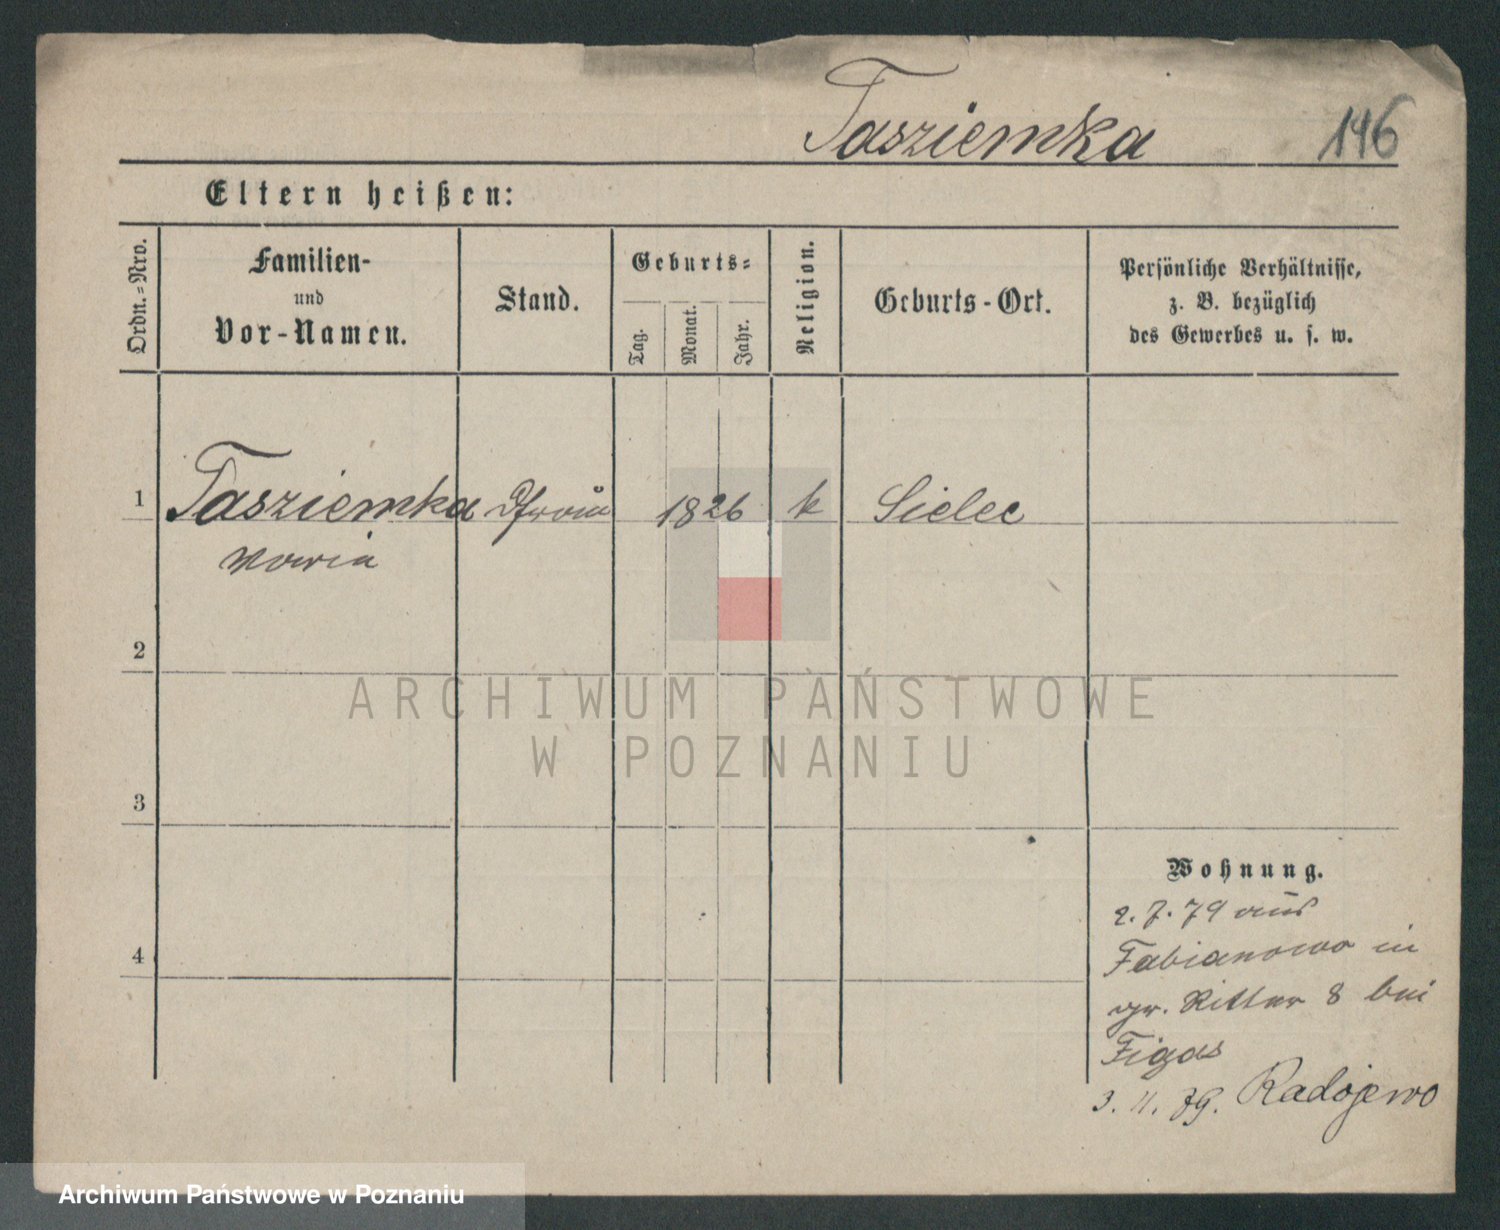 Tasziemka 146
Eltern heißen:
Ordn.-Nro.
Familien-
und
Vor-Namen.
Stand.
Geburts-
Tag.
Monat.
Jahr.
Religion.
Geburts-Ort.
Persönliche Verhältnisse,
z. B. bezüglich
des Gewerbes u. s. w.
1 Tasziemka 1826 k Sielec
Maria
2
3
4
Wohnung.
2. 7. 79 aus
Fabianowo in
gr. Ritter 8 bei
Figas
3. 11. 79. Radojewo
ARCHIWUM PAŃSTWOWE
W POZNANIU
Archiwum Państwowe w Poznaniu